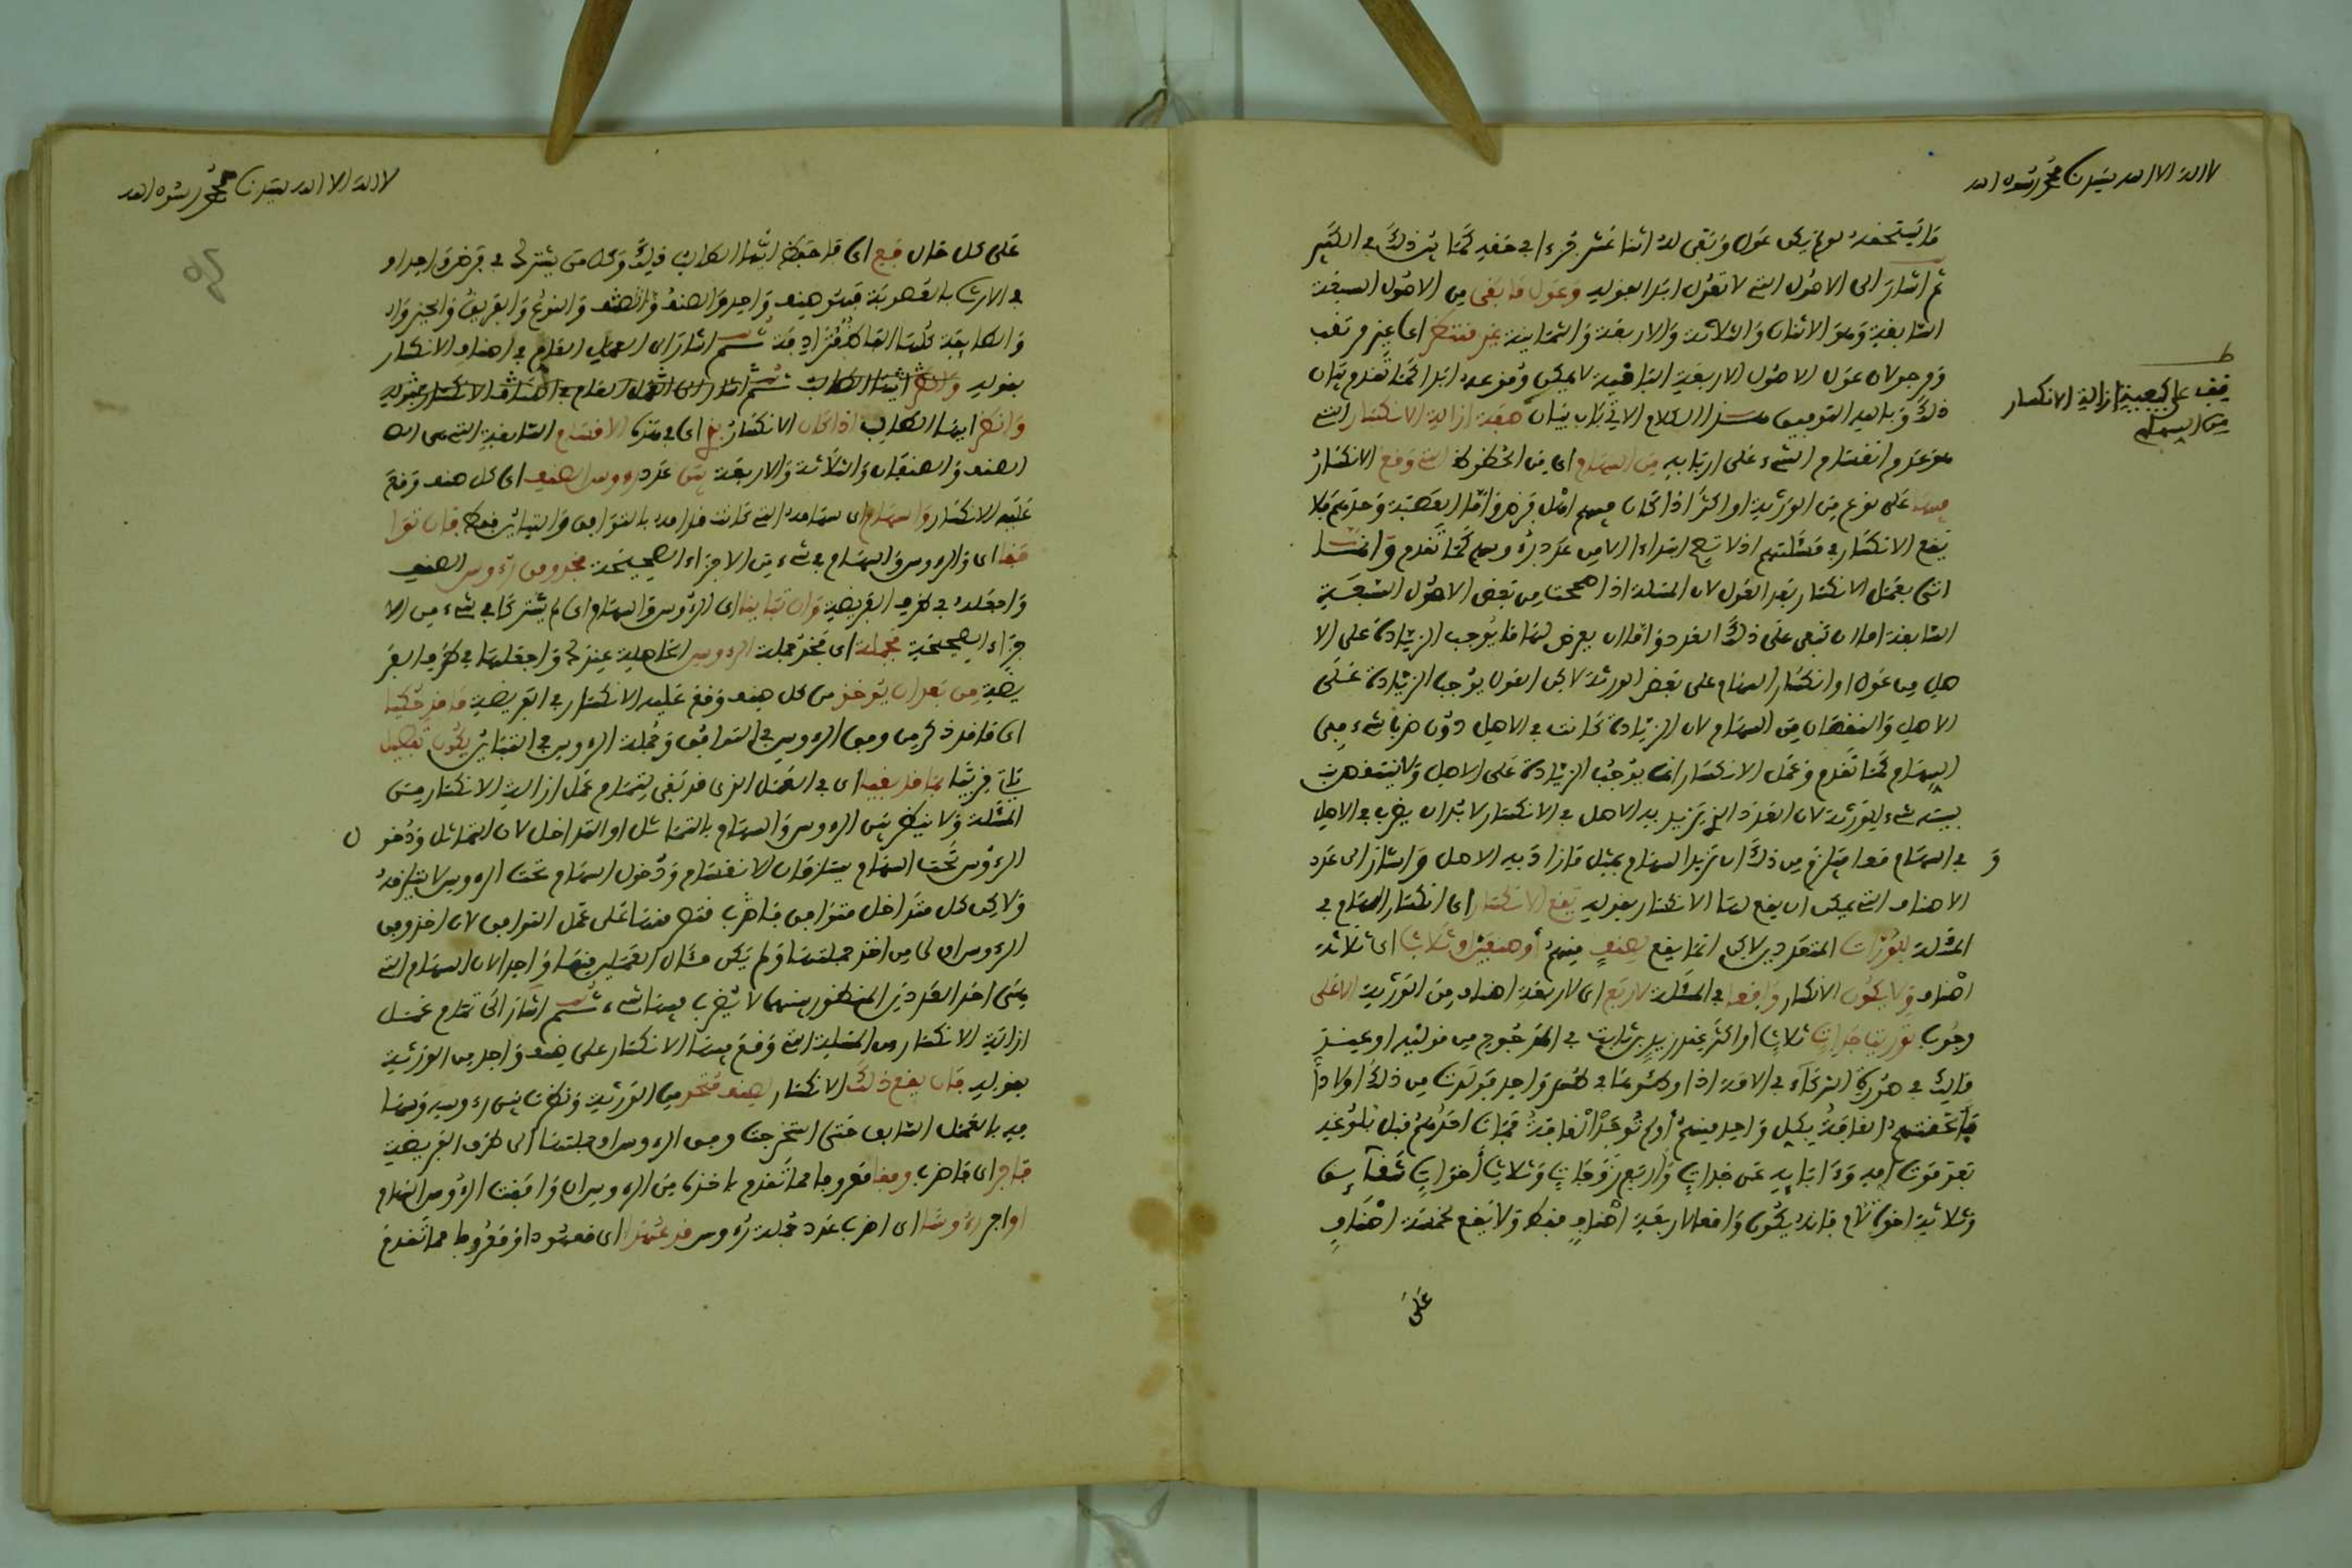 لا اله الا الله سيدنا محمد رسول الله
ما يستحقه لو لم يكن عول وبقي له اثنا عشر جزءا
ثم اشار الى الاصول التي لا تعول ابدا بقوله وعول ما بقي من الاصول السبعة
السابقة وهو الاثنان والثلاثة والاربعة والثمانية غير
عول الاصول الاربعة الباقية لا يمكن كما تقدم بيان
ذلك وبالله التوفيق الكلام الان في باب بيان صفة ازالة الانكسار التي
هو عدم انقسام الشيء على اربابه من السهام اي من الحظوظ التي وقع الانكسار
فيها على نوع من الورثة او اكثر اذا كان فيهم اهل فرض واما العصبة وحدهم فلا
يقع الانكسار في مسئلتهم اذ لا تصح ابتداء الا من عدد رءوسهم كما تقدم وانما
اتى بعمل الانكسار بعد العول لان المسئلة اذا صححت من بعض الاصول السبعة
السابقة اما ان تبقى على ذلك العدد واما ان يعرض لها ما يوجب الزيادة على الا
صل من عول او انكسار السهام على بعض الورثة لاكن العول يوجب الزيادة على
الاصل والنقصان من السهام لان الزيادة كانت في الاصل دون ضرب شيء في
السهام كما تقدم وعمل الانكسار انما يوجب الزيادة على الاصل ولا ينتقص من
شيء للورثة لان العدد الذي تزيد به الاصل في الانكسار لا بد ان يضرب في الاصل
و
في السهام معا فيلزم من ذلك ان تزيد السهام بمثل ما زاد به الاصل واشار الى عدد
الاصناف التي يمكن ان يقع لها الانكسار بقوله يقع الانكسار اي انكسار السهام في
المسئلة للوراث المتعددين لاكن انما يقع لصنف منهم او صنفين او ثلاث اي ثلاثة
اصناف ولا يكون الانكسار واقعا في المسئلة لاربع اي لاربعة اصناف من الورثة الا على
وجوب توريث جدات ثلاث او اكثر عند زيد بن ثابت في المرجوح من قوليه او عند
مالك في صورة الشركاء في الامة اذا وطئوها في طهر واحد فولدت من ذلك اولادا
فالحقتهم القافة بكل واحد منهم او لم توجد القافة فمات احدهم قبل بلوغه
بعد موت امه وءابائه عن جدات واربع زوجات وثلاث اخوات شقائق
وثلاثة اخوة لام فانه يكون واقعا لاربعة اصناف فقط ولا يقع لخمسة اصناف
على
ط
قف على كيفية ازالة الانكسار
من السهام
لا اله الا الله سيدنا محمد رسول الله
على كل حال فع اي فاحفظ ايها الطالب ذلك وكل من يشترك في فرض واحد او
في الارث بالعصوبة فهو صنف واحد والصنف والنوع والفريق والحيز
والطائفة كلها الفاظ مترادفة ثم اشار الى العمل العام في اصناف الانكسار
بقوله وانظر ايها الطالب ثم اشار الى العمل العام في اصناف الانكسار بقوله
وانظر ايها الطالب اذا كان الانكسار في الاقسام السابقة التي هي
الصنف والصنفان والثلاثة والاربعة بين عدد رءوس الصنف اي كل صنف وقع
عليه الانكسار والسهام اي سهامه التي كانت له بالتوافق والتباين فقط فان توا
فقا اي الرءوس والسهام في شيء من الاجزاء الصحيحة فخذ وفق رءوس الصنف
واجعله في طرف الفريضة وان تباينا اي الرءوس والسهام اي لم يشتركا في شيء من الا
جزاء الصحيحة فجملة اي فخذ جملة الرءوس الحاصلة عندك واجعلها في طرف الفر
يضة من بعد ان يوخذ من كل صنف وقع عليه الانكسار في الفريضة ما قد حكيا
اي ما قد ذكر من وفق الرءوس في التوافق وجملة الرءوس في التباين يكون تفصيل
ياتي قريبا بما قد بقيا اي في العمل الذي قد بقي لتمام عمل ازالة الانكسار من
المسئلة ولا ينظر بين الرءوس والسهام بالتماثل او التداخل لان التماثل ودخو
ل
الرءوس تحت السهام يستلزمان الانقسام ودخول السهام تحت الرءوس لا يستلزمه
ولاكن كل متداخل متوافق فاقتصر فيها على عمل التوافق لان اخذ وفق
الرءوس اولى من اخذ جملتها ولم يكن العملين فيها واحد لان السهام التي
هي احد العددين المنظور بينهما لا يضرب فيها شيء ثم اشار الى تمام عمل
ازالة الانكسار من المسئلة التي وقع فيها الانكسار على صنف واحد من الورثة
بقوله فان يقع ذلك الانكسار لصنف متحد من الورثة ونظرت بين رءوسه وسها
مه بالعمل السابق حتى استخرجت وفق الرءوس او جملتها الى طرف الفريضة
فاضرب اي فاضرب وفقا معروفا مما تقدم باخذك من الرءوس ان وافقت الرءوس السهام
او اضرب رءوسا اي اضرب عدد جملة رءوس قد عهدا اي معهودا ومعروفا مما تقدم